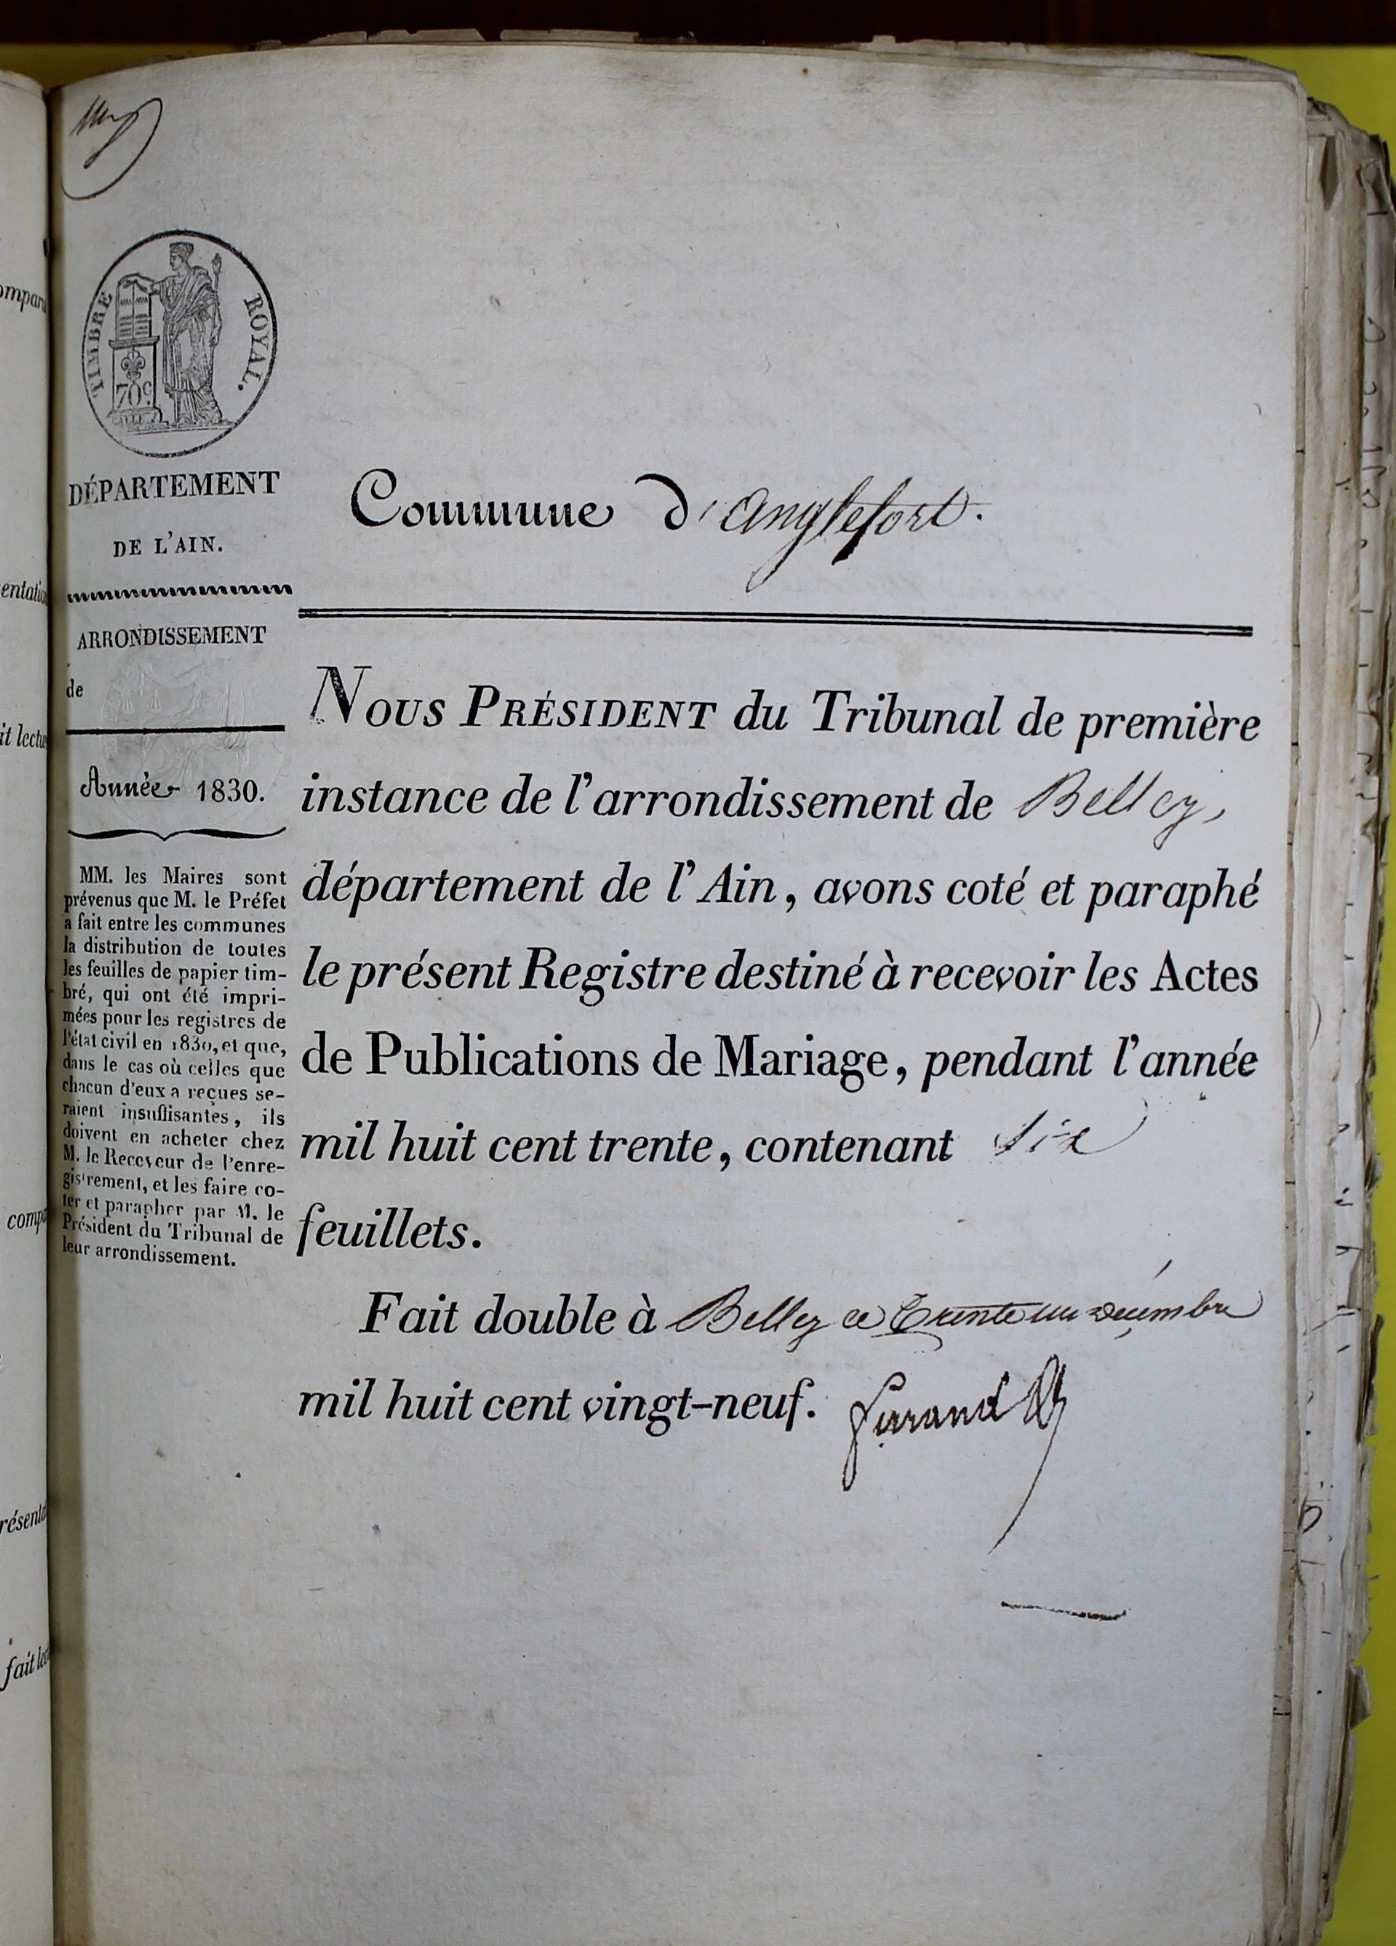 TIMBRE ROYAL.
70c
DÉPARTEMENT
DE L'AIN.
ARRONDISSEMENT
de
Année 1830.
MM. les Maires sont
prévenus que M. le Préfet
a fait entre les communes
la distribution de toutes
les feuilles de papier tim-
bré, qui ont été impri-
mées pour les registres de
l'état civil en 1830, et que,
dans le cas où celles que
chacun d'eux a reçues se-
raient insuffisantes, ils
doivent en acheter chez
M. le Receveur de l'enre-
gistrement, et les faire co-
ter et parapher par M. le
Président du Tribunal de
leur arrondissement.
Commune d'Anglefort.
NOUS PRÉSIDENT du Tribunal de première
instance de l'arrondissement de Belley,
département de l'Ain, avons coté et paraphé
le présent Registre destiné à recevoir les Actes
de Publications de Mariage, pendant l'année
mil huit cent trente, contenant six
feuillets.
Fait double à Belley ce Trente un décembre
mil huit cent vingt-neuf.